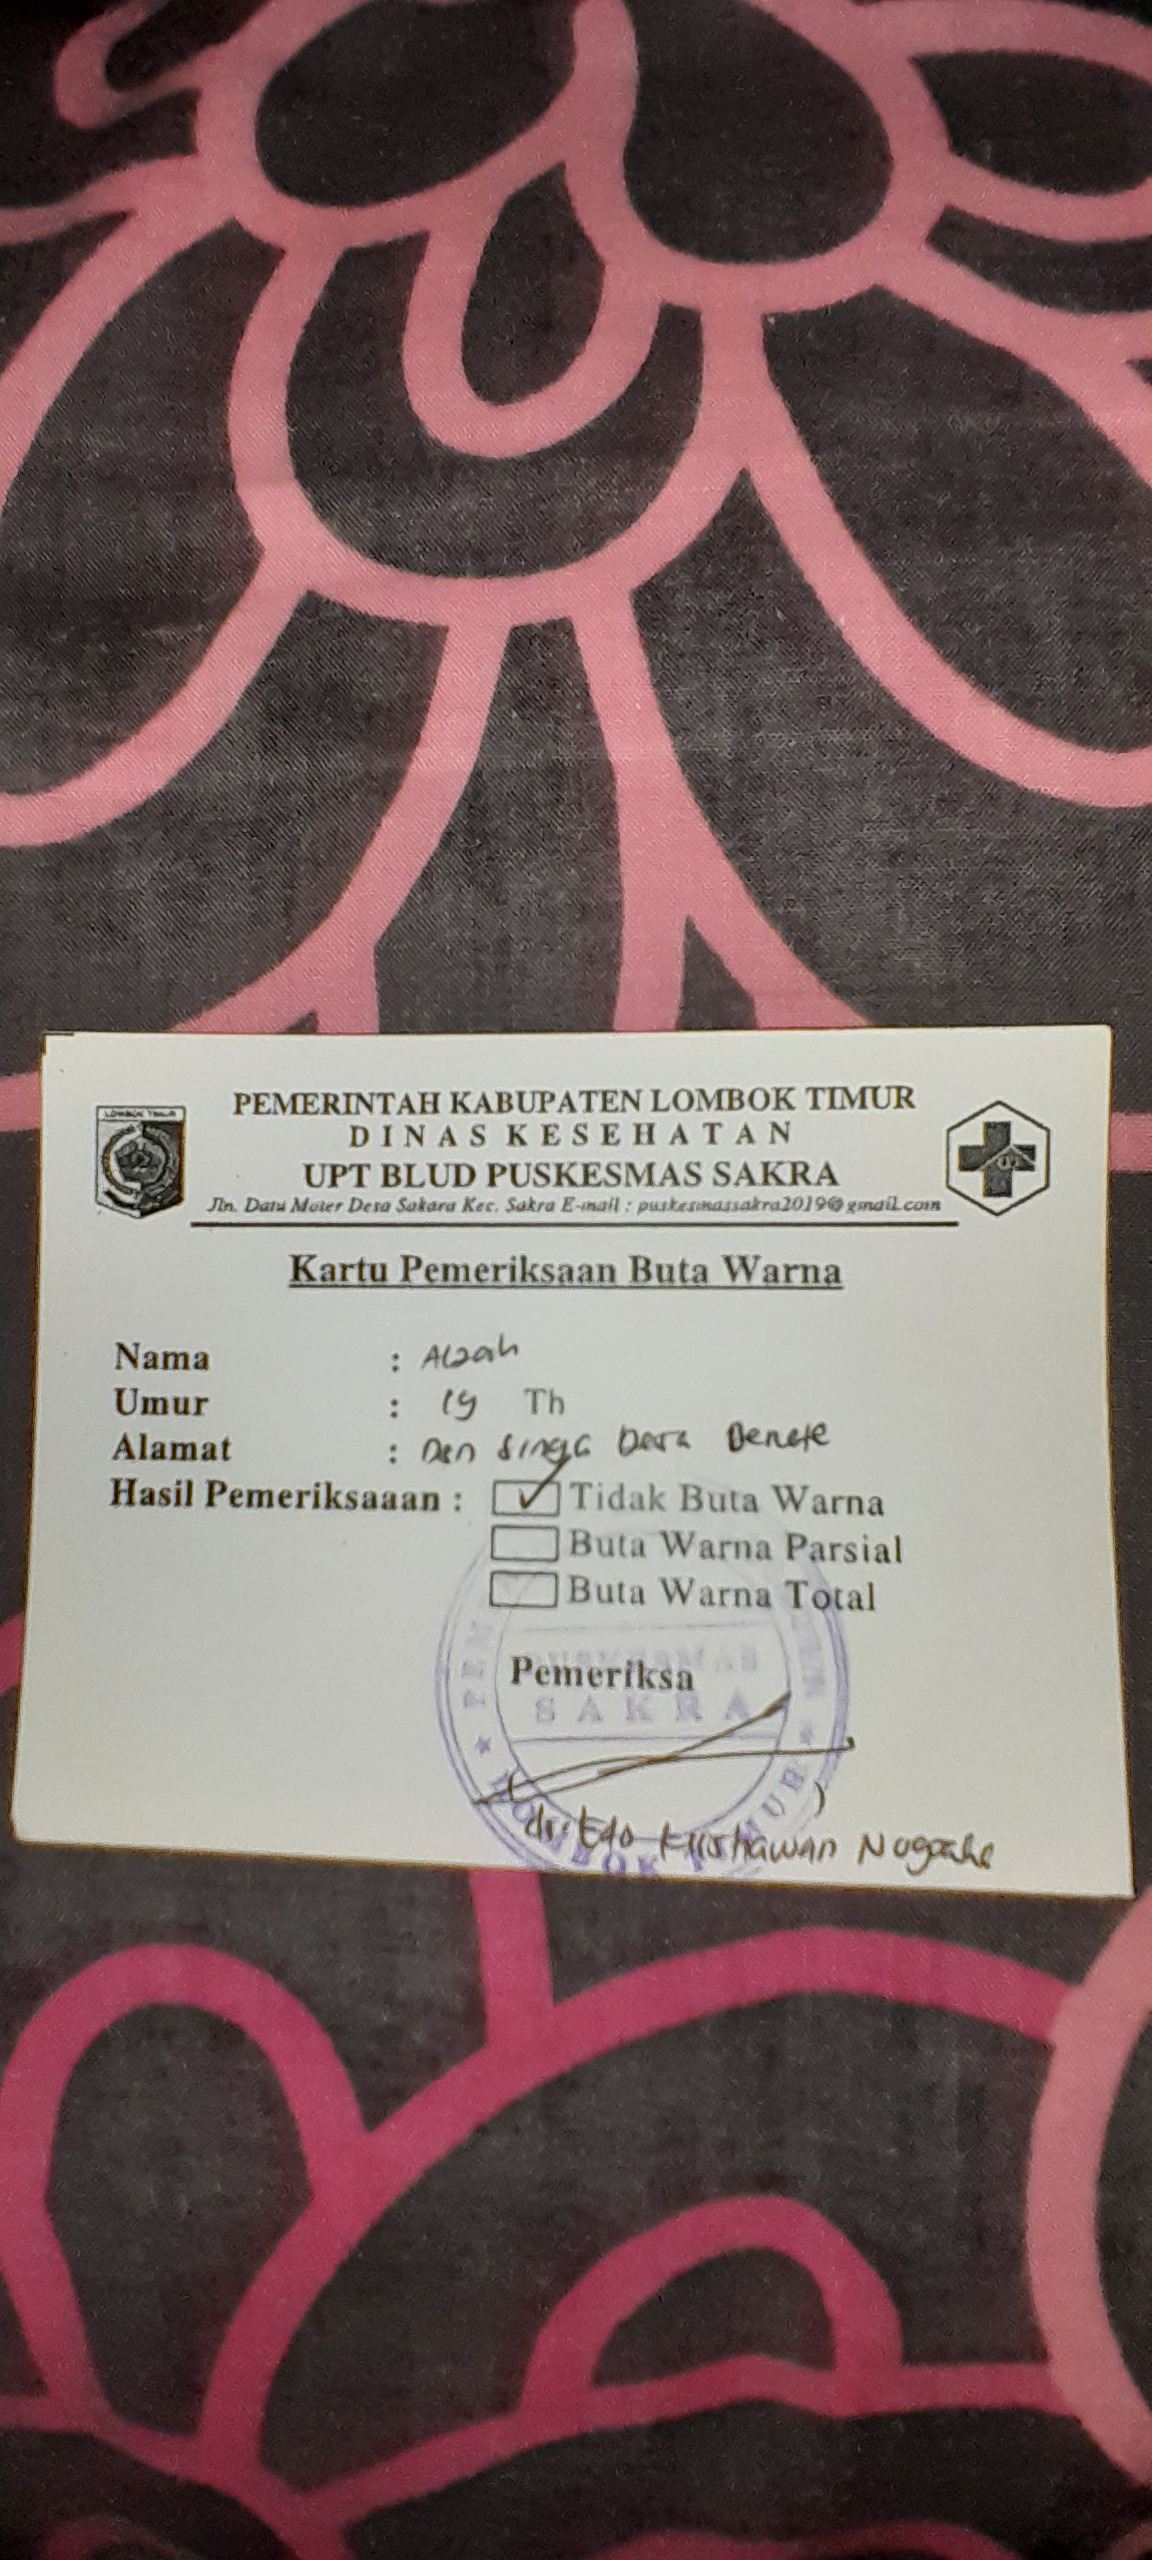 LOMBOK TIMUR
PEMERINTAH KABUPATEN LOMBOK TIMUR
DINAS KESEHATAN
UPT BLUD PUSKESMAS SAKRA
Jln. Datu Moter Desa Sakara Kec. Sakra E-mail : puskesmassakra2019@gmail.com
Kartu Pemeriksaan Buta Warna
Nama :
Umur : 19 Th
Alamat : Den Singa Desa
Hasil Pemeriksaaan : ✓ Tidak Buta Warna
Buta Warna Parsial
Buta Warna Total
PUSKESMAS
Pemeriksa
SAKRA
( dr. Edo )
LOMBOK TIMUR